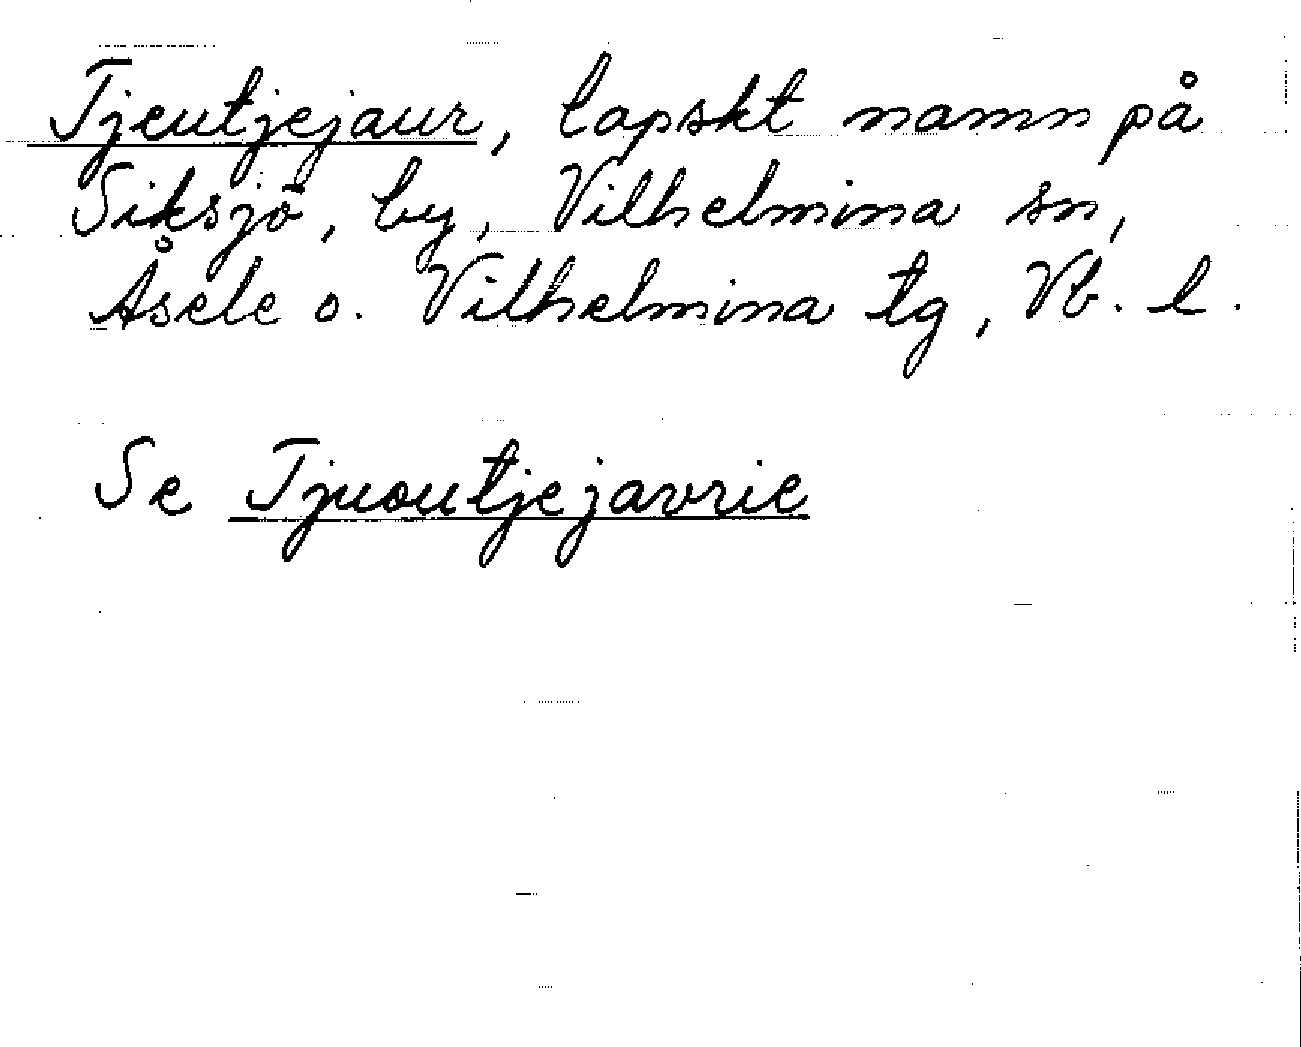 Tjeutjejaur, lapskt namn på
Siksjö, by, Vilhelmina sn,
Åsele o. Vilhelmina tg, Vb. l.
Se Tjuoutjejavrie